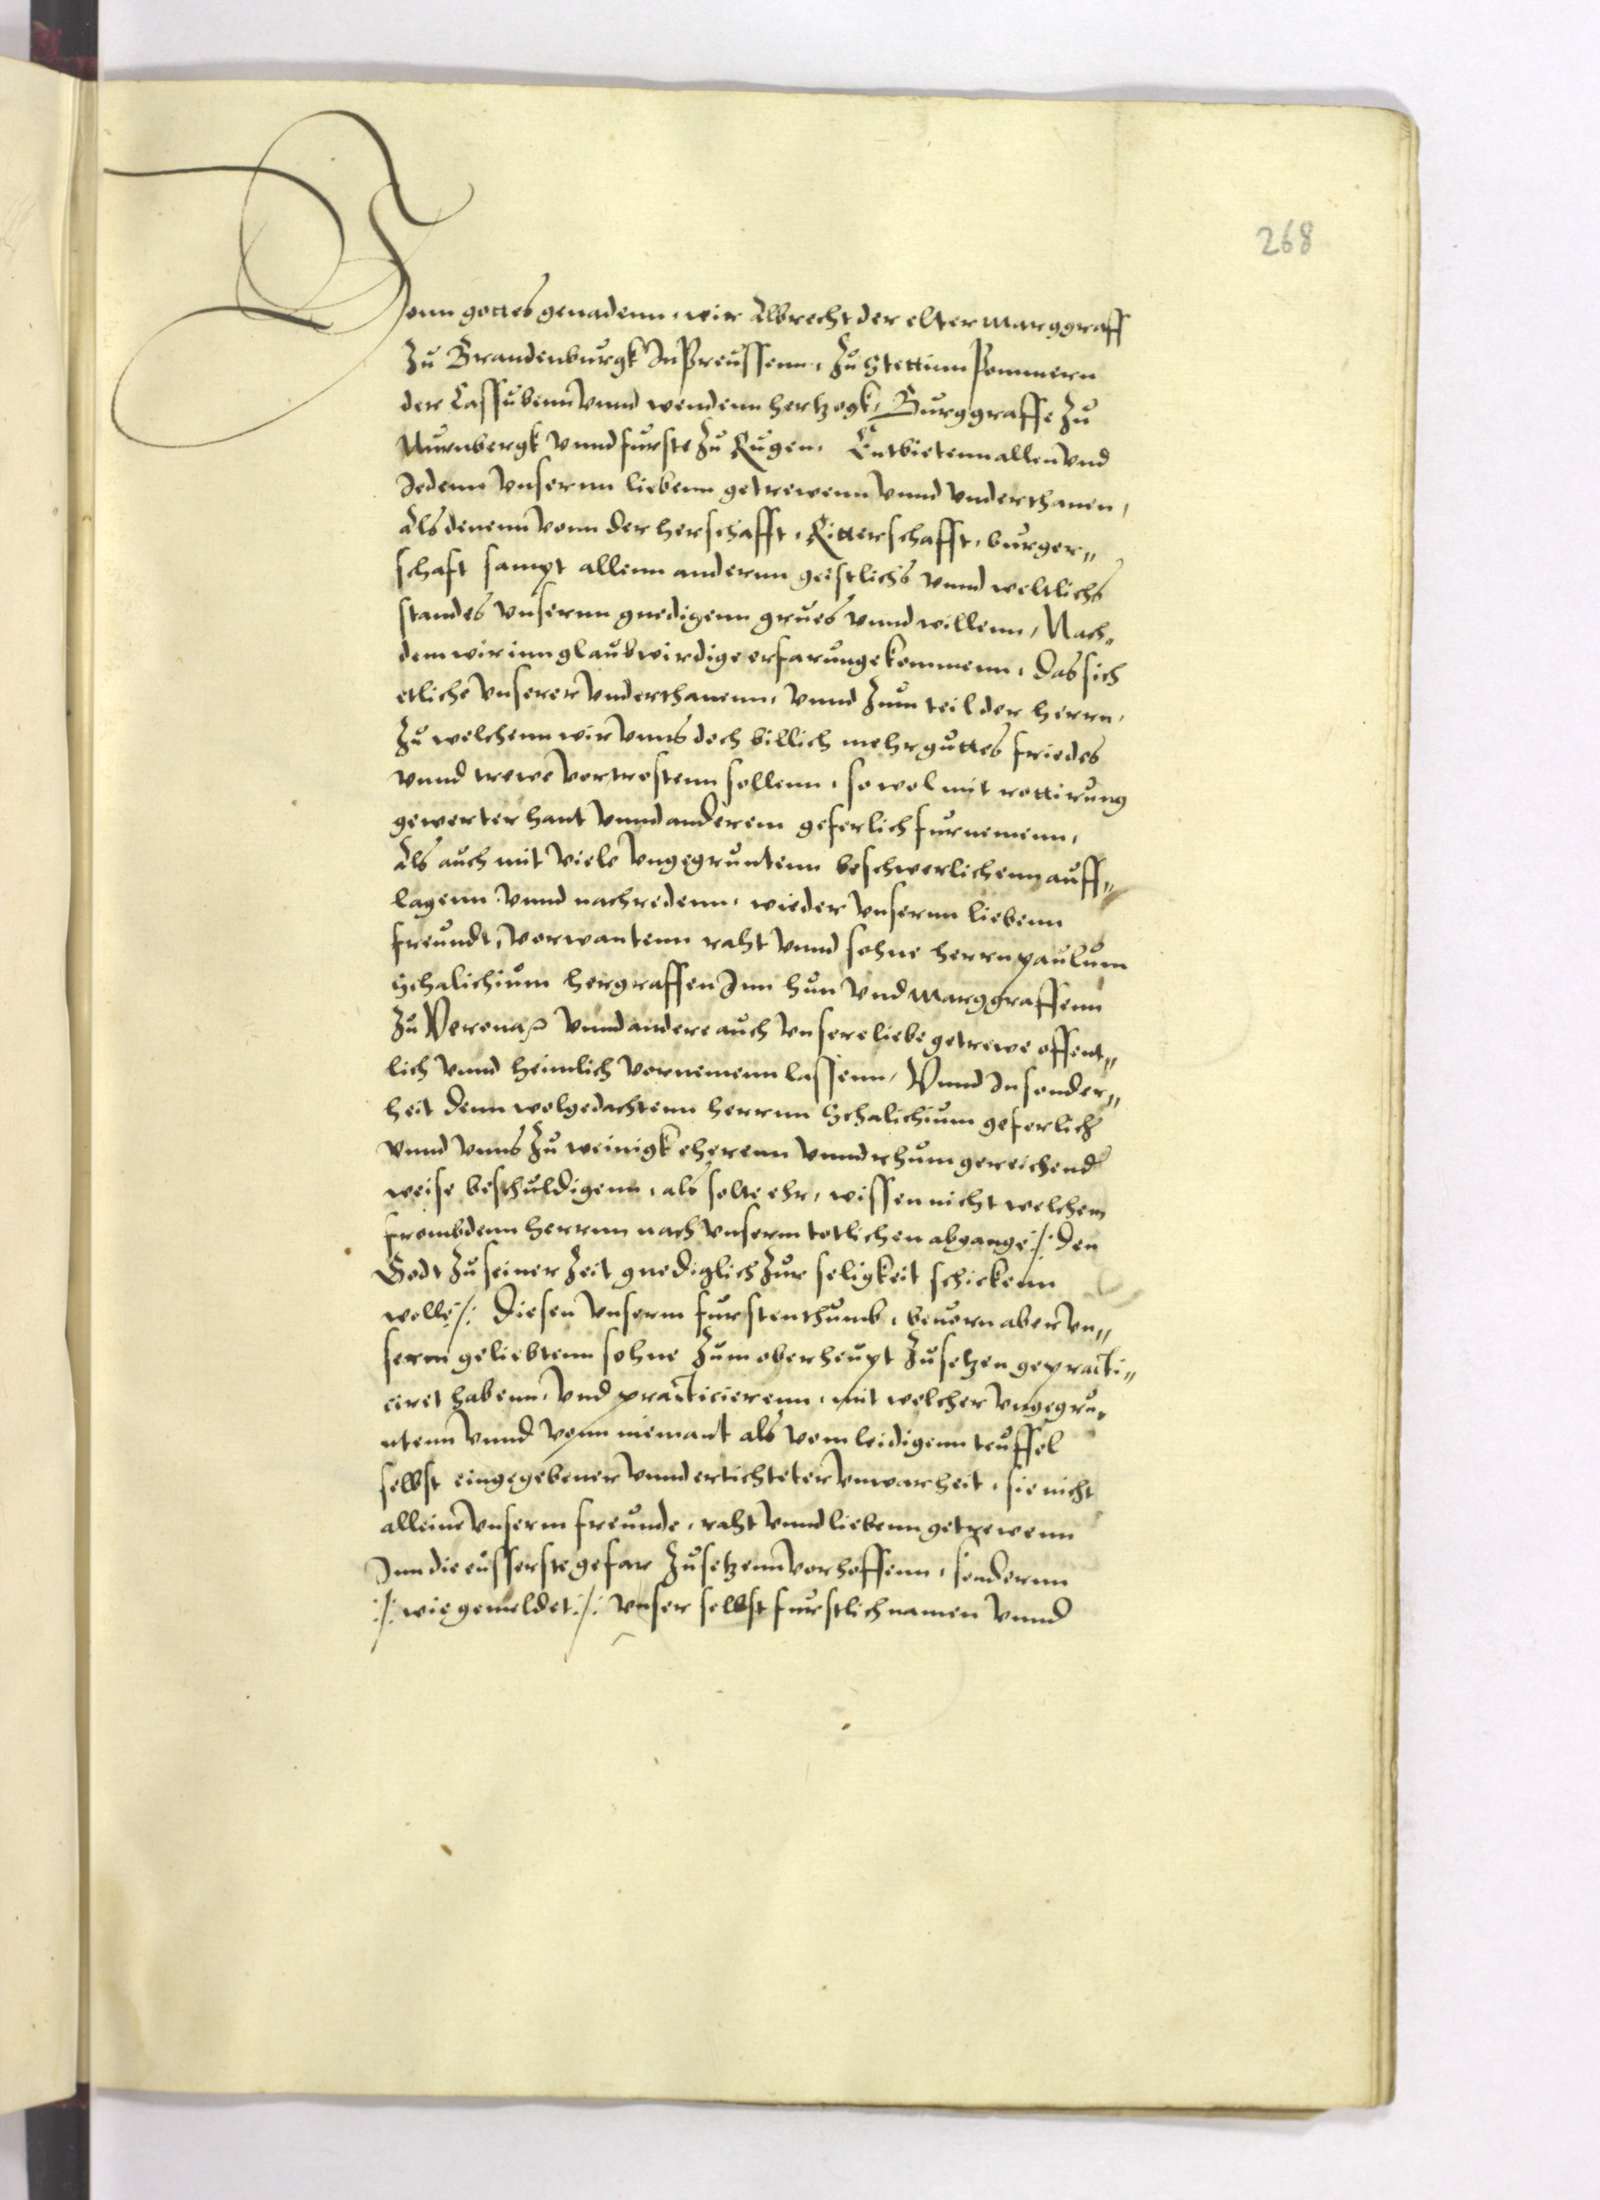 268
Vonn gottes genadenn, wir Albrecht der elter Marggraff
Zu Brandenburgk In Preussenn, Zu Stettinn Pommern
der Cassubenn vnnd wendenn hertzogk, Burggraffe Zu
Nurnbergk vnnd furste Zu Rugen, Entbietenn allen vnd
Jedenn vnsernn liebenn getrewenn vnnd vnderthanen,
Als denenn vonn der herschafft, Ritterschafft, burger„
schaft sampt allenn andernn geistlichs vnnd weltlichs
standes vnsernn gnedigenn grues vnnd willenn, Nach„
dem wir inn glaubwirdige erfarunge kommenn, das sich
etliche vnserer vnderthanenn, vnnd Zum teil der herrn,
Zu welchenn wir vnns doch billich mehr guttes friedes
vnnd trewe vertrostenn sollenn, so wol mit rottirung
gewerter hant vnnd anderem geferlich furnemenn,
Als auch mit viele vngegruntenn beschwerlichenn auff„
lagenn vnnd nachredenn, wieder vnsernn liebenn
freundt, verwantenn raht vnnd sohne herrn paulum
Schalichium hergraffen Inn hun vnd Marggraffenn
Zu Verona vnnd andere auch vnsere liebe getrewe offent„
lich vnnd heimlich vernemenn lassenn, Vnnd In sonder„
heit denn wolgedachtenn herrnn Schalichium geferlich
vnnd vnns Zu weinigk eherenn vnnd rhum gereichend
weise beschuldigenn, als solte ehr, wissen nicht welchem
frembdenn herrnn nach vnserm totlichen abgange :/: den
Godt Zu seiner Zeit gnediglich Zur seligkeit schickenn
wolle :/: diesen vnserm furstenthumb, beuorn aber vn„
serm geliebtenn sohne Zum oberheupt Zu setzen gepracti„
ciret habenn, vnd practicierenn, mit welcher vngegru„
ntenn vnnd vonn niemant als vom leidigenn teuffel
selbst eingegebener vnnd ertichteter vnwarheit, sie nicht
alleine vnserm freunde, raht vnnd liebenn getrewenn
Inn die eusserste gefar Zu setzenn verhoffenn, sondernn
:/: wie gemeldet :/: vnser selbst furstlich namen vnnd